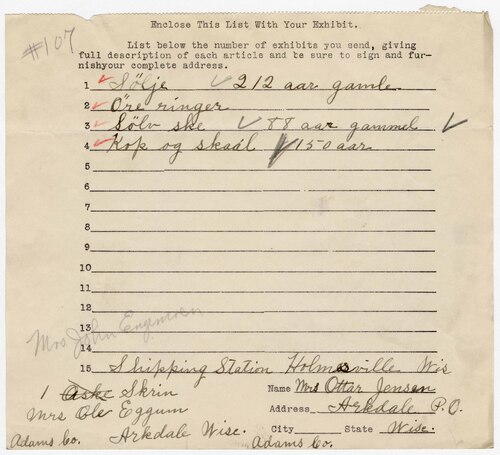 Enclose This List With Your Exhibit.
#107
List below the number of exhibits you send, giving
full description of each article and be sure to sign and fur-
nishyour complete address.
1 ✓ Sølje ✓ 212 aar gamle
2 ✓ Öre ringer
3 ✓ Sölv ske ✓ 88 aar gammel ✓
4 ✓ Kop og skaal ✓ 150 aar
5
6
7
8
9
10
11
12
13
Mrs John
14
15 Shipping Station Holmesville Wis
1 Aske Skrin
Name Mrs Ottar Jensen
Mrs Ole Eggum
Address Arkdale P.O.
Arkdale Wisc.
City State Wisc.
Adams Co.
Adams Co.